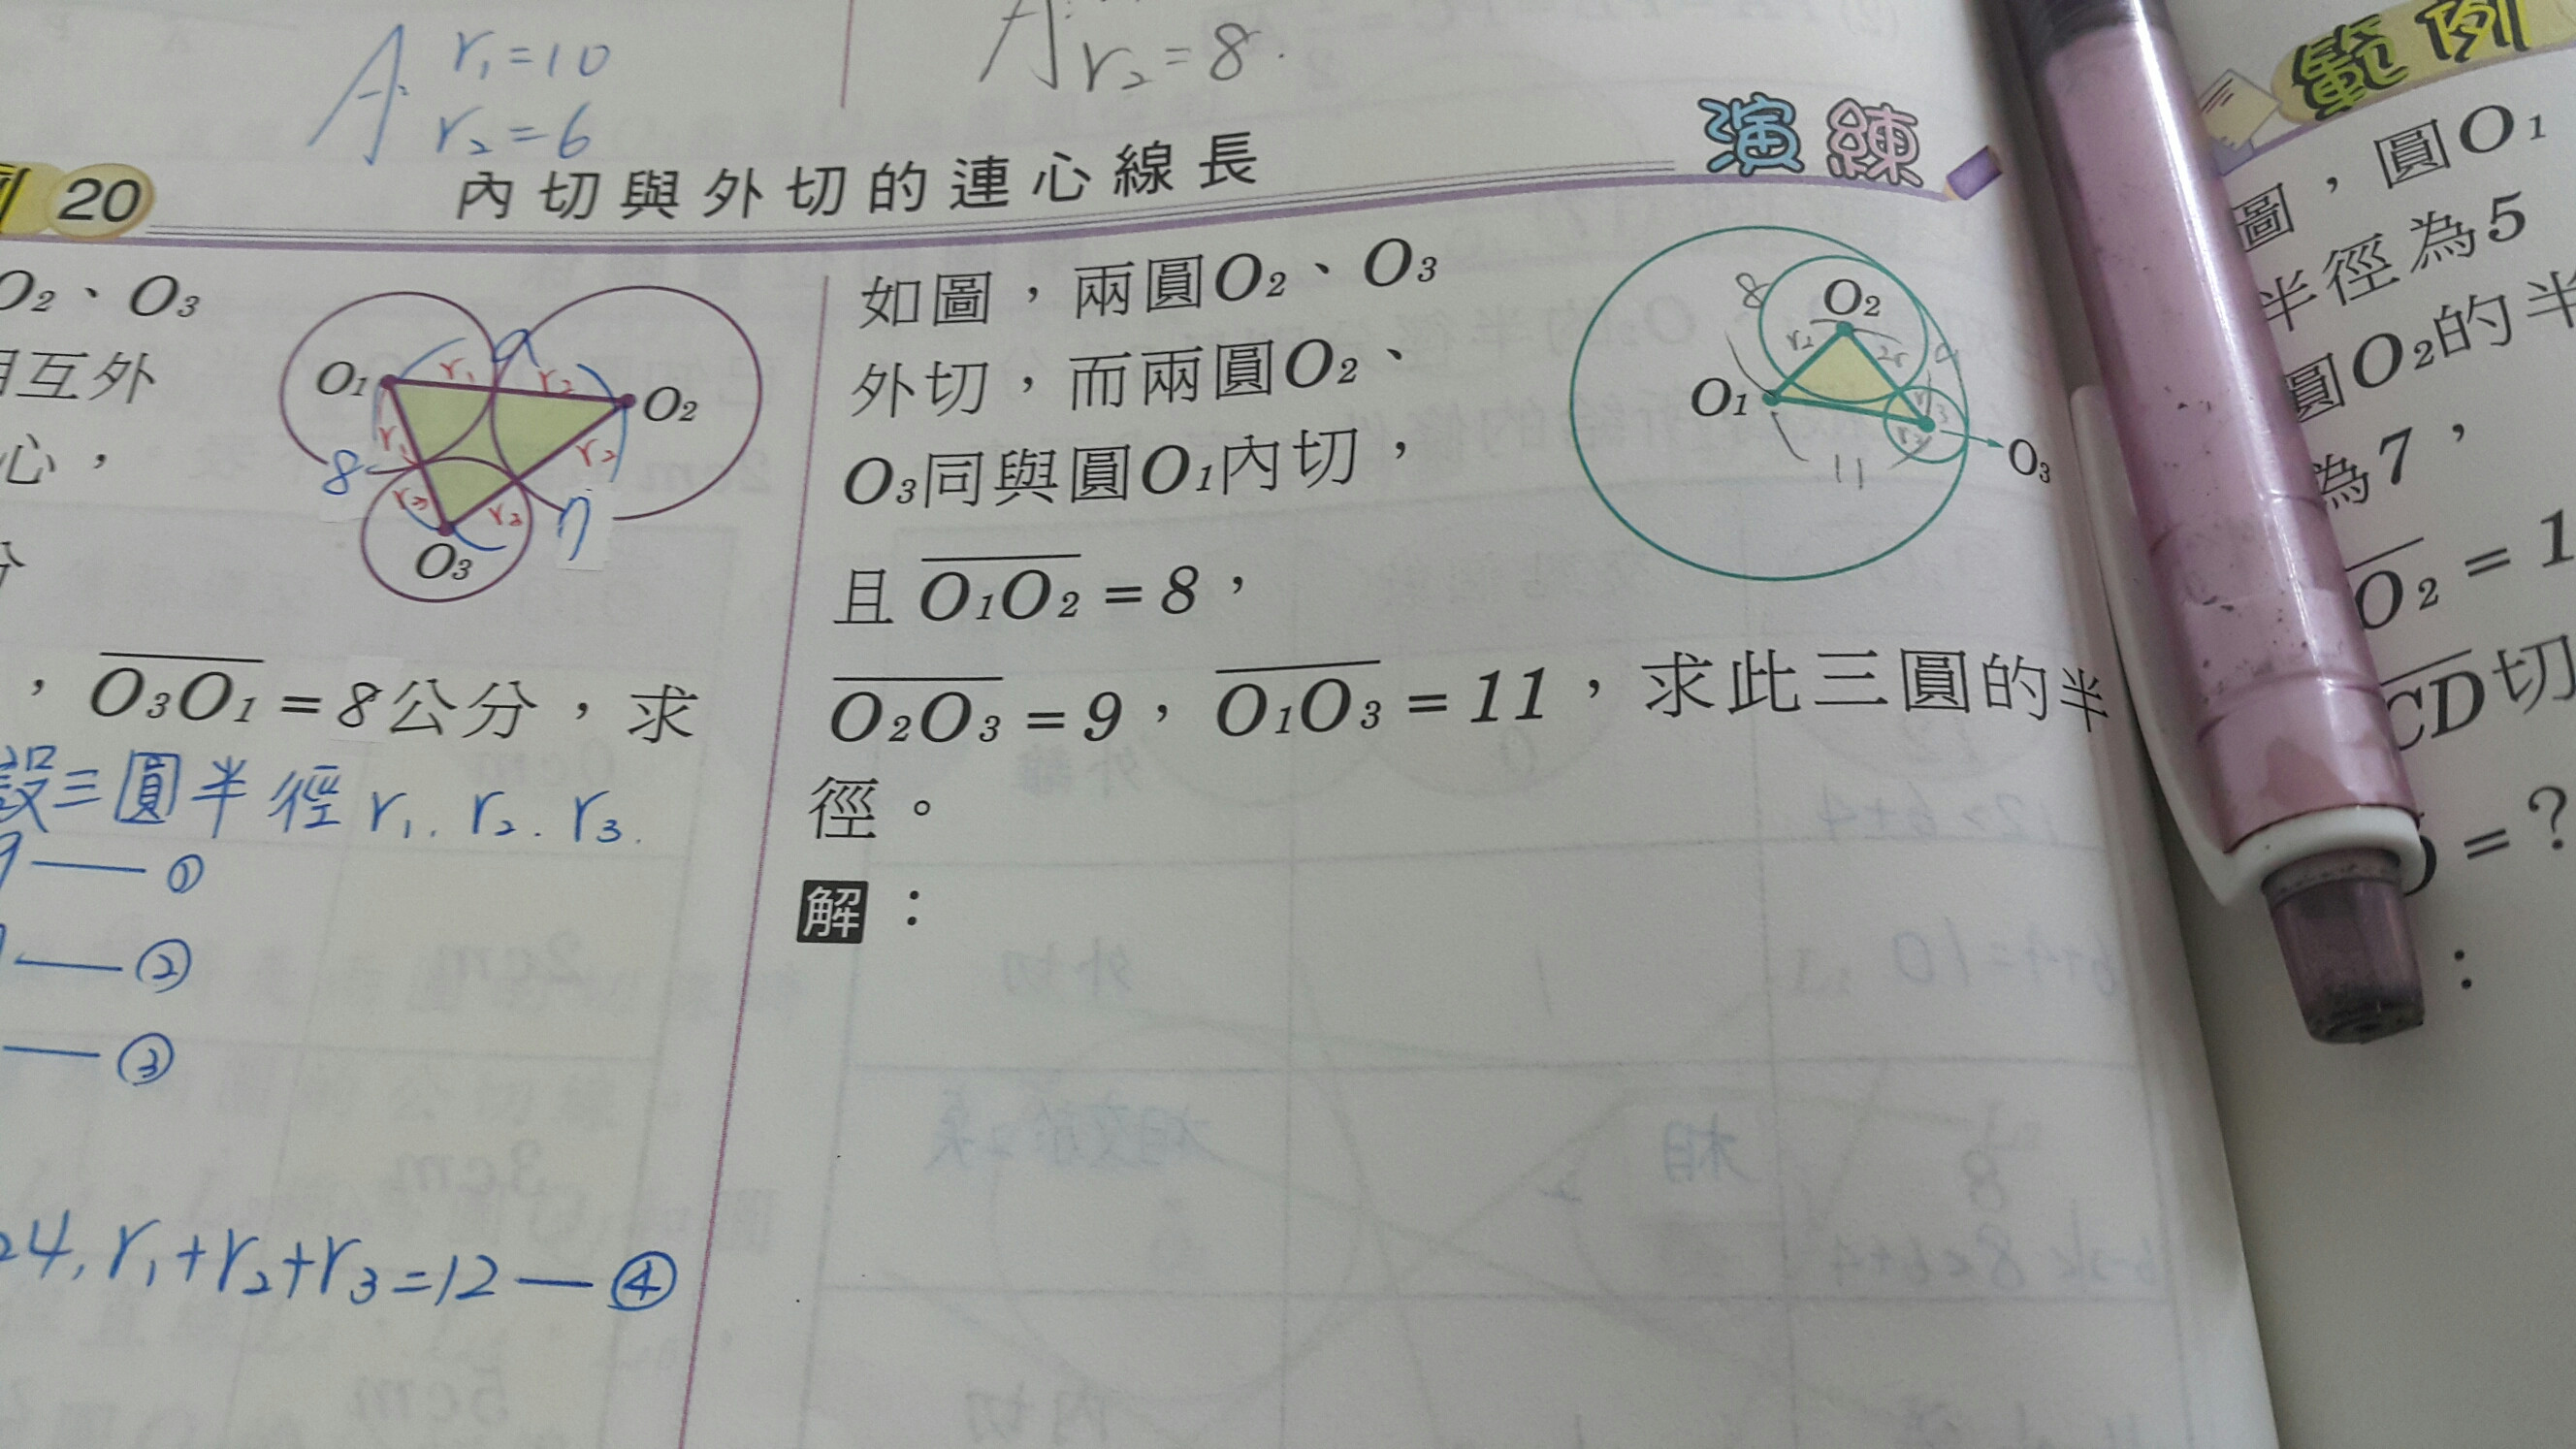 A: r₁=10
r₂=6
A: r₂=8.
20
內切與外切的連心線長
演練
O₂、O₃
互外
心，
O₁
O₂
O₃
r₁
r₂
r₁
r₂
r₃
r₃
9
8
7
，O₃O₁=8公分，求
設三圓半徑r₁. r₂. r₃.
9——①
——②
——③
24, r₁+r₂+r₃=12—④
如圖，兩圓O₂、O₃
外切，而兩圓O₂、
O₃同與圓O₁內切，
且 O₁O₂=8，
O₂O₃=9，O₁O₃=11，求此三圓的半
徑。
解：
O₂
O₁
O₃
8
r₂
9
r₃
r₃
11
範例
圖，圓O₁
半徑為5
圓O₂的半
為7，
O₂=1
CD切
=？
：